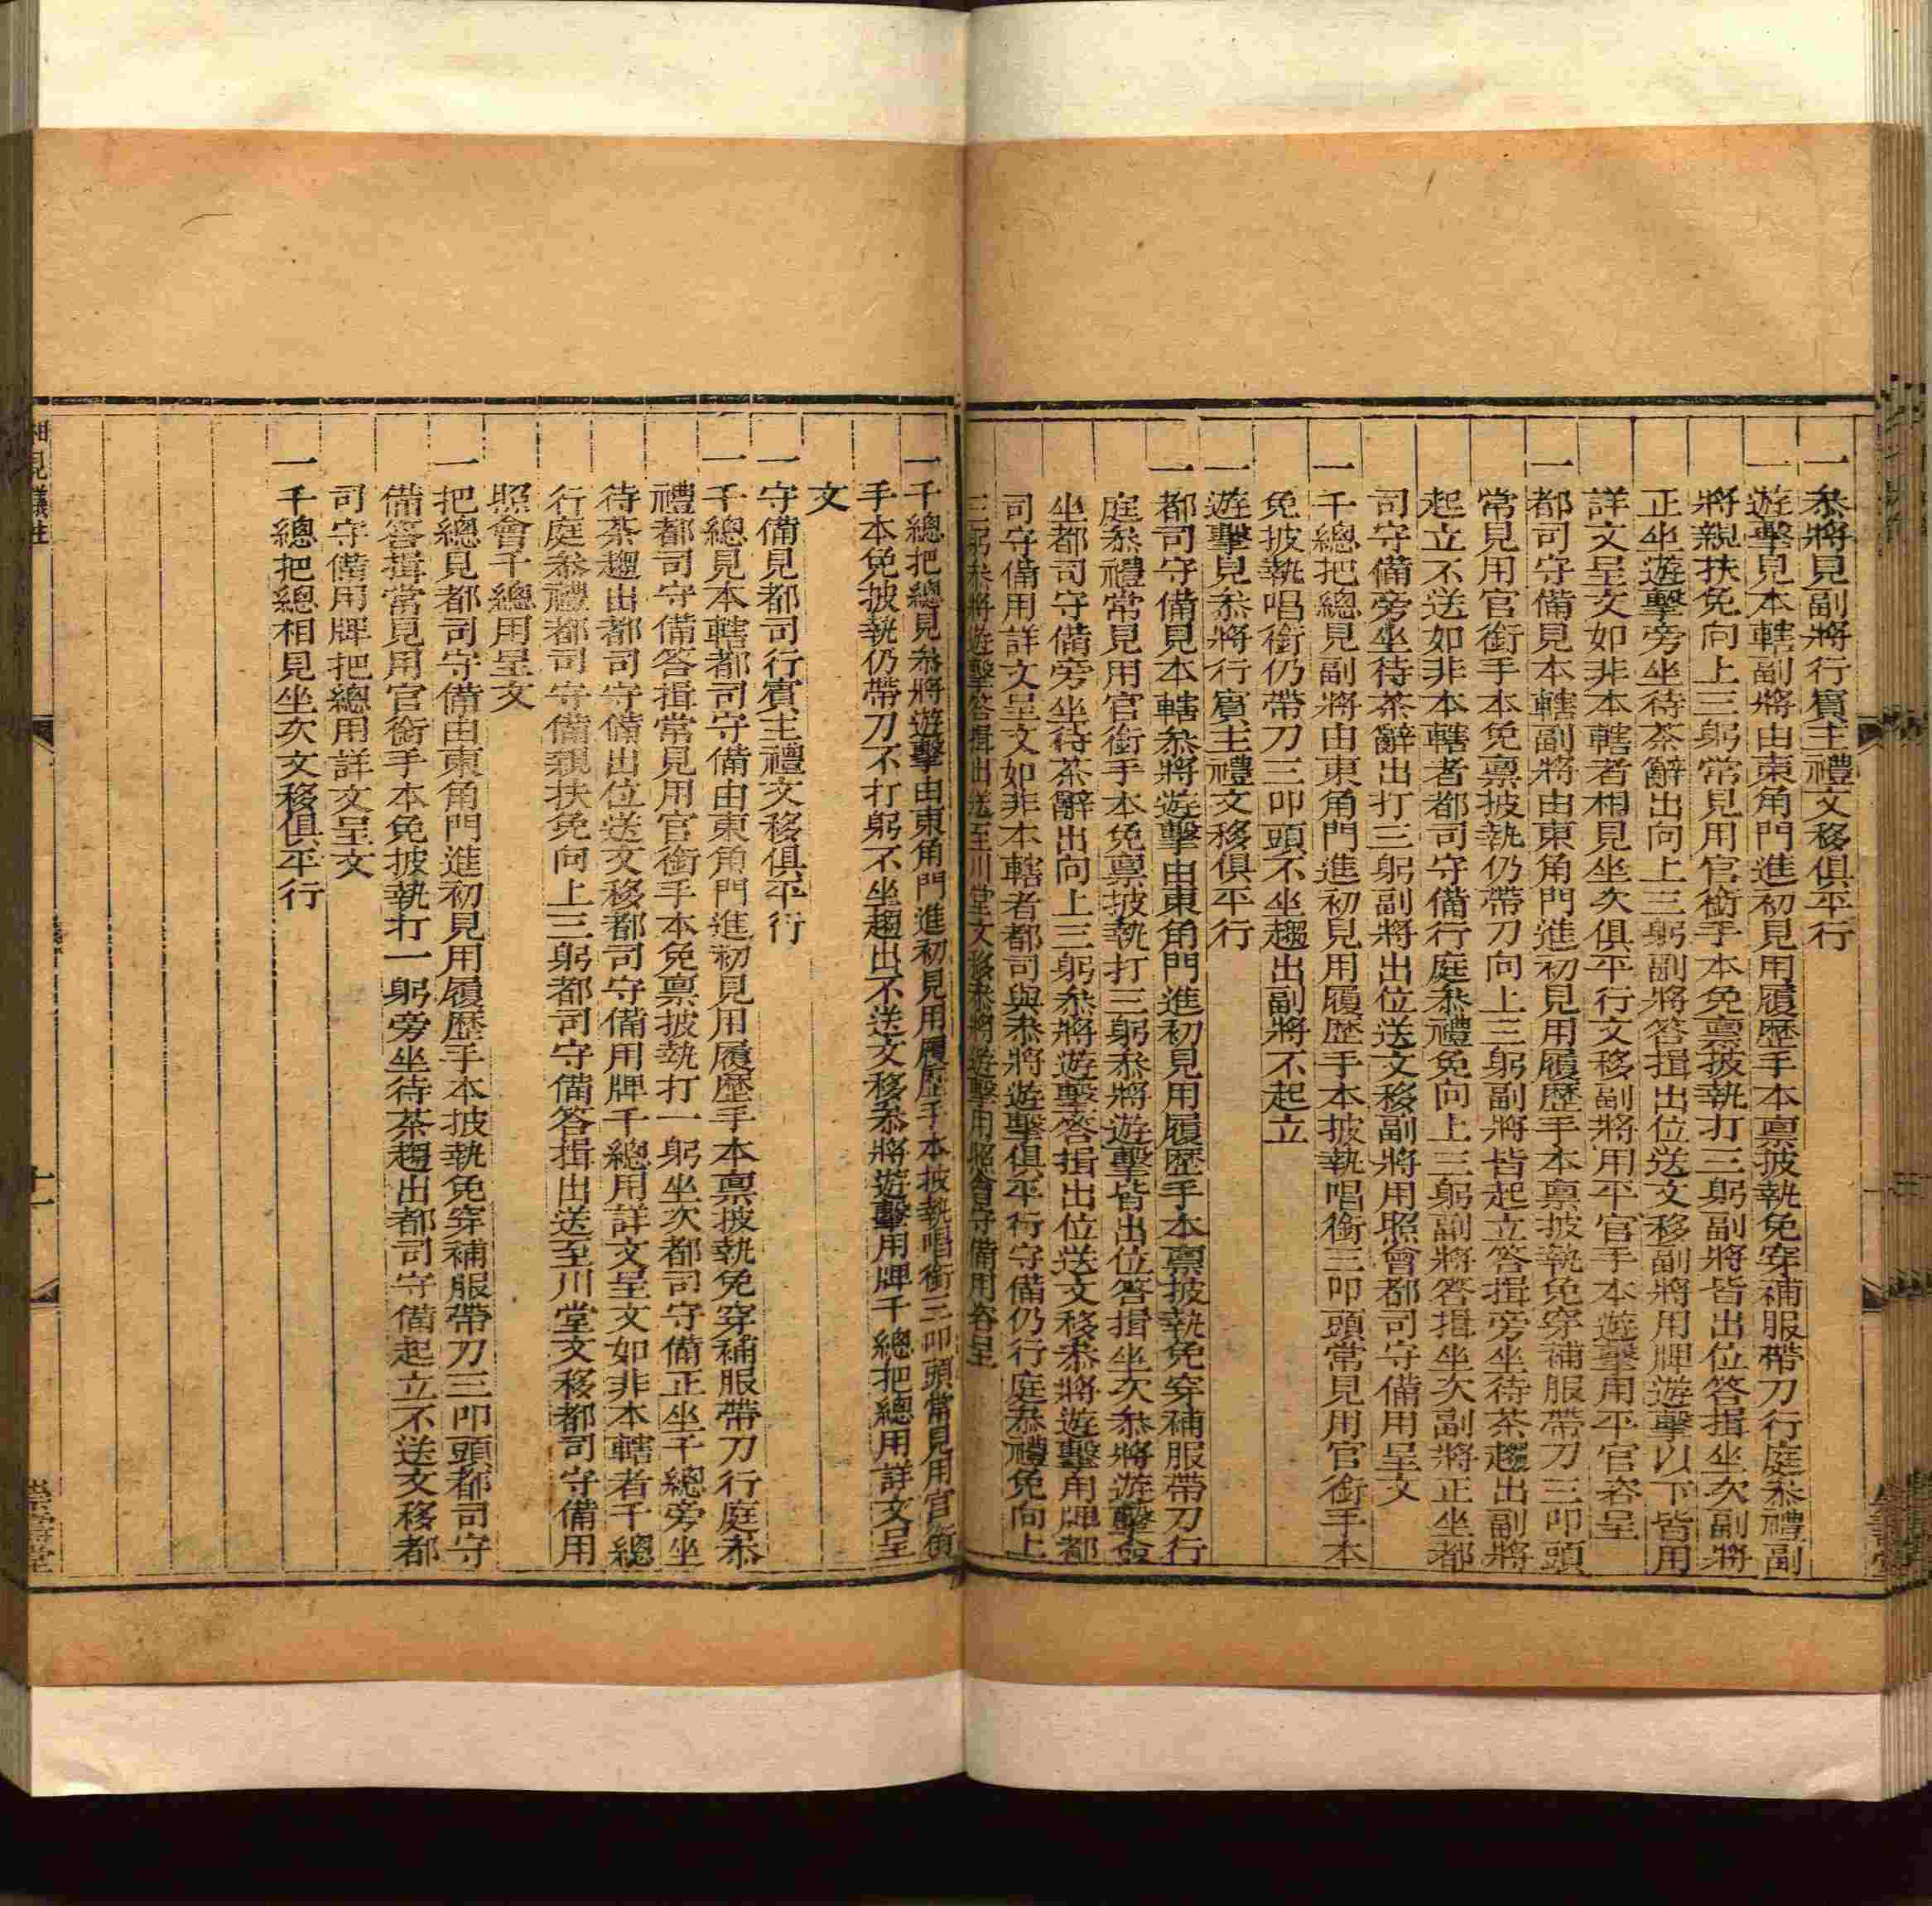 一叅將見副將行賓主禮文移俱平行
一遊擊見本轄副將由東角門進初見用履歷手本稟披執免穿補服帶刀行庭叅禮副
將親扶免向上三躬常見用官銜手本免稟披執打三躬副將皆出位答揖坐次副將
正坐遊擊旁坐待茶辭出向上三躬副將答揖出位送文移副將用牌遊擊以下皆用
詳文呈文如非本轄者相見坐次俱平行文移副將用平官手本遊擊用平官咨呈
一都司守備見本轄副將由東角門進初見用履歷手本稟披執免穿補服帶刀三叩頭
常見用官銜手本免稟披執仍帶刀向上三躬副將皆起立答揖旁坐待茶趨出副將
起立不送如非本轄者都司守備行庭叅禮免向上三躬副將答揖坐次副將正坐都
司守備旁坐待茶辭出打三躬副將出位送文移副將用照會都司守備用呈文
一千總把總見副將由東角門進初見用履歷手本披執唱銜三叩頭常見用官銜手本
免披執唱銜仍帶刀三叩頭不坐趨出副將不起立
一遊擊見叅將行賓主禮文移俱平行
一都司守備見本轄叅將遊擊由東角門進初見用履歷手本稟披執免穿補服帶刀行
庭叅禮常見用官銜手本免稟披執打三躬叅將遊擊皆出位答揖坐次叅將遊擊
坐都司守備旁坐待茶辭出向上三躬叅將遊擊答揖出位送文移叅將遊擊用牌都
司守備用詳文呈文如非本轄者都司與叅將遊擊俱平行守備仍行庭叅禮免向上
三躬叅將遊擊答揖出送至川堂文移叅將遊擊用照會守備用咨呈
一千總把總見叅將遊擊由東角門進初見用履歷手本披執唱銜三叩頭常見用官銜
手本免披執仍帶刀不打躬不坐趨出不送文移叅將遊擊用牌千總把總用詳文呈
文
一守備見都司行賓主禮文移俱平行
一千總見本轄都司守備由東角門進初見用履歷手本稟披執免穿補服帶刀行庭叅
禮都司守備答揖常見用官銜手本免稟披執打一躬坐次都司守備正坐千總旁坐
待茶趨出都司守備出位送文移都司守備用牌千總用詳文呈文如非本轄者千總
行庭叅禮都司守備親扶免向上三躬都司守備答揖出送至川堂文移都司守備用
照會千總用呈文
一把總見都司守備由東角門進初見用履歷手本披執免穿補服帶刀三叩頭都司守
備答揖常見用官銜手本免披執打一躬旁坐待茶趨出都司守備起立不送文移都
司守備用牌把總用詳文呈文
一千總把總相見坐次文移俱平行
相見儀注
十一